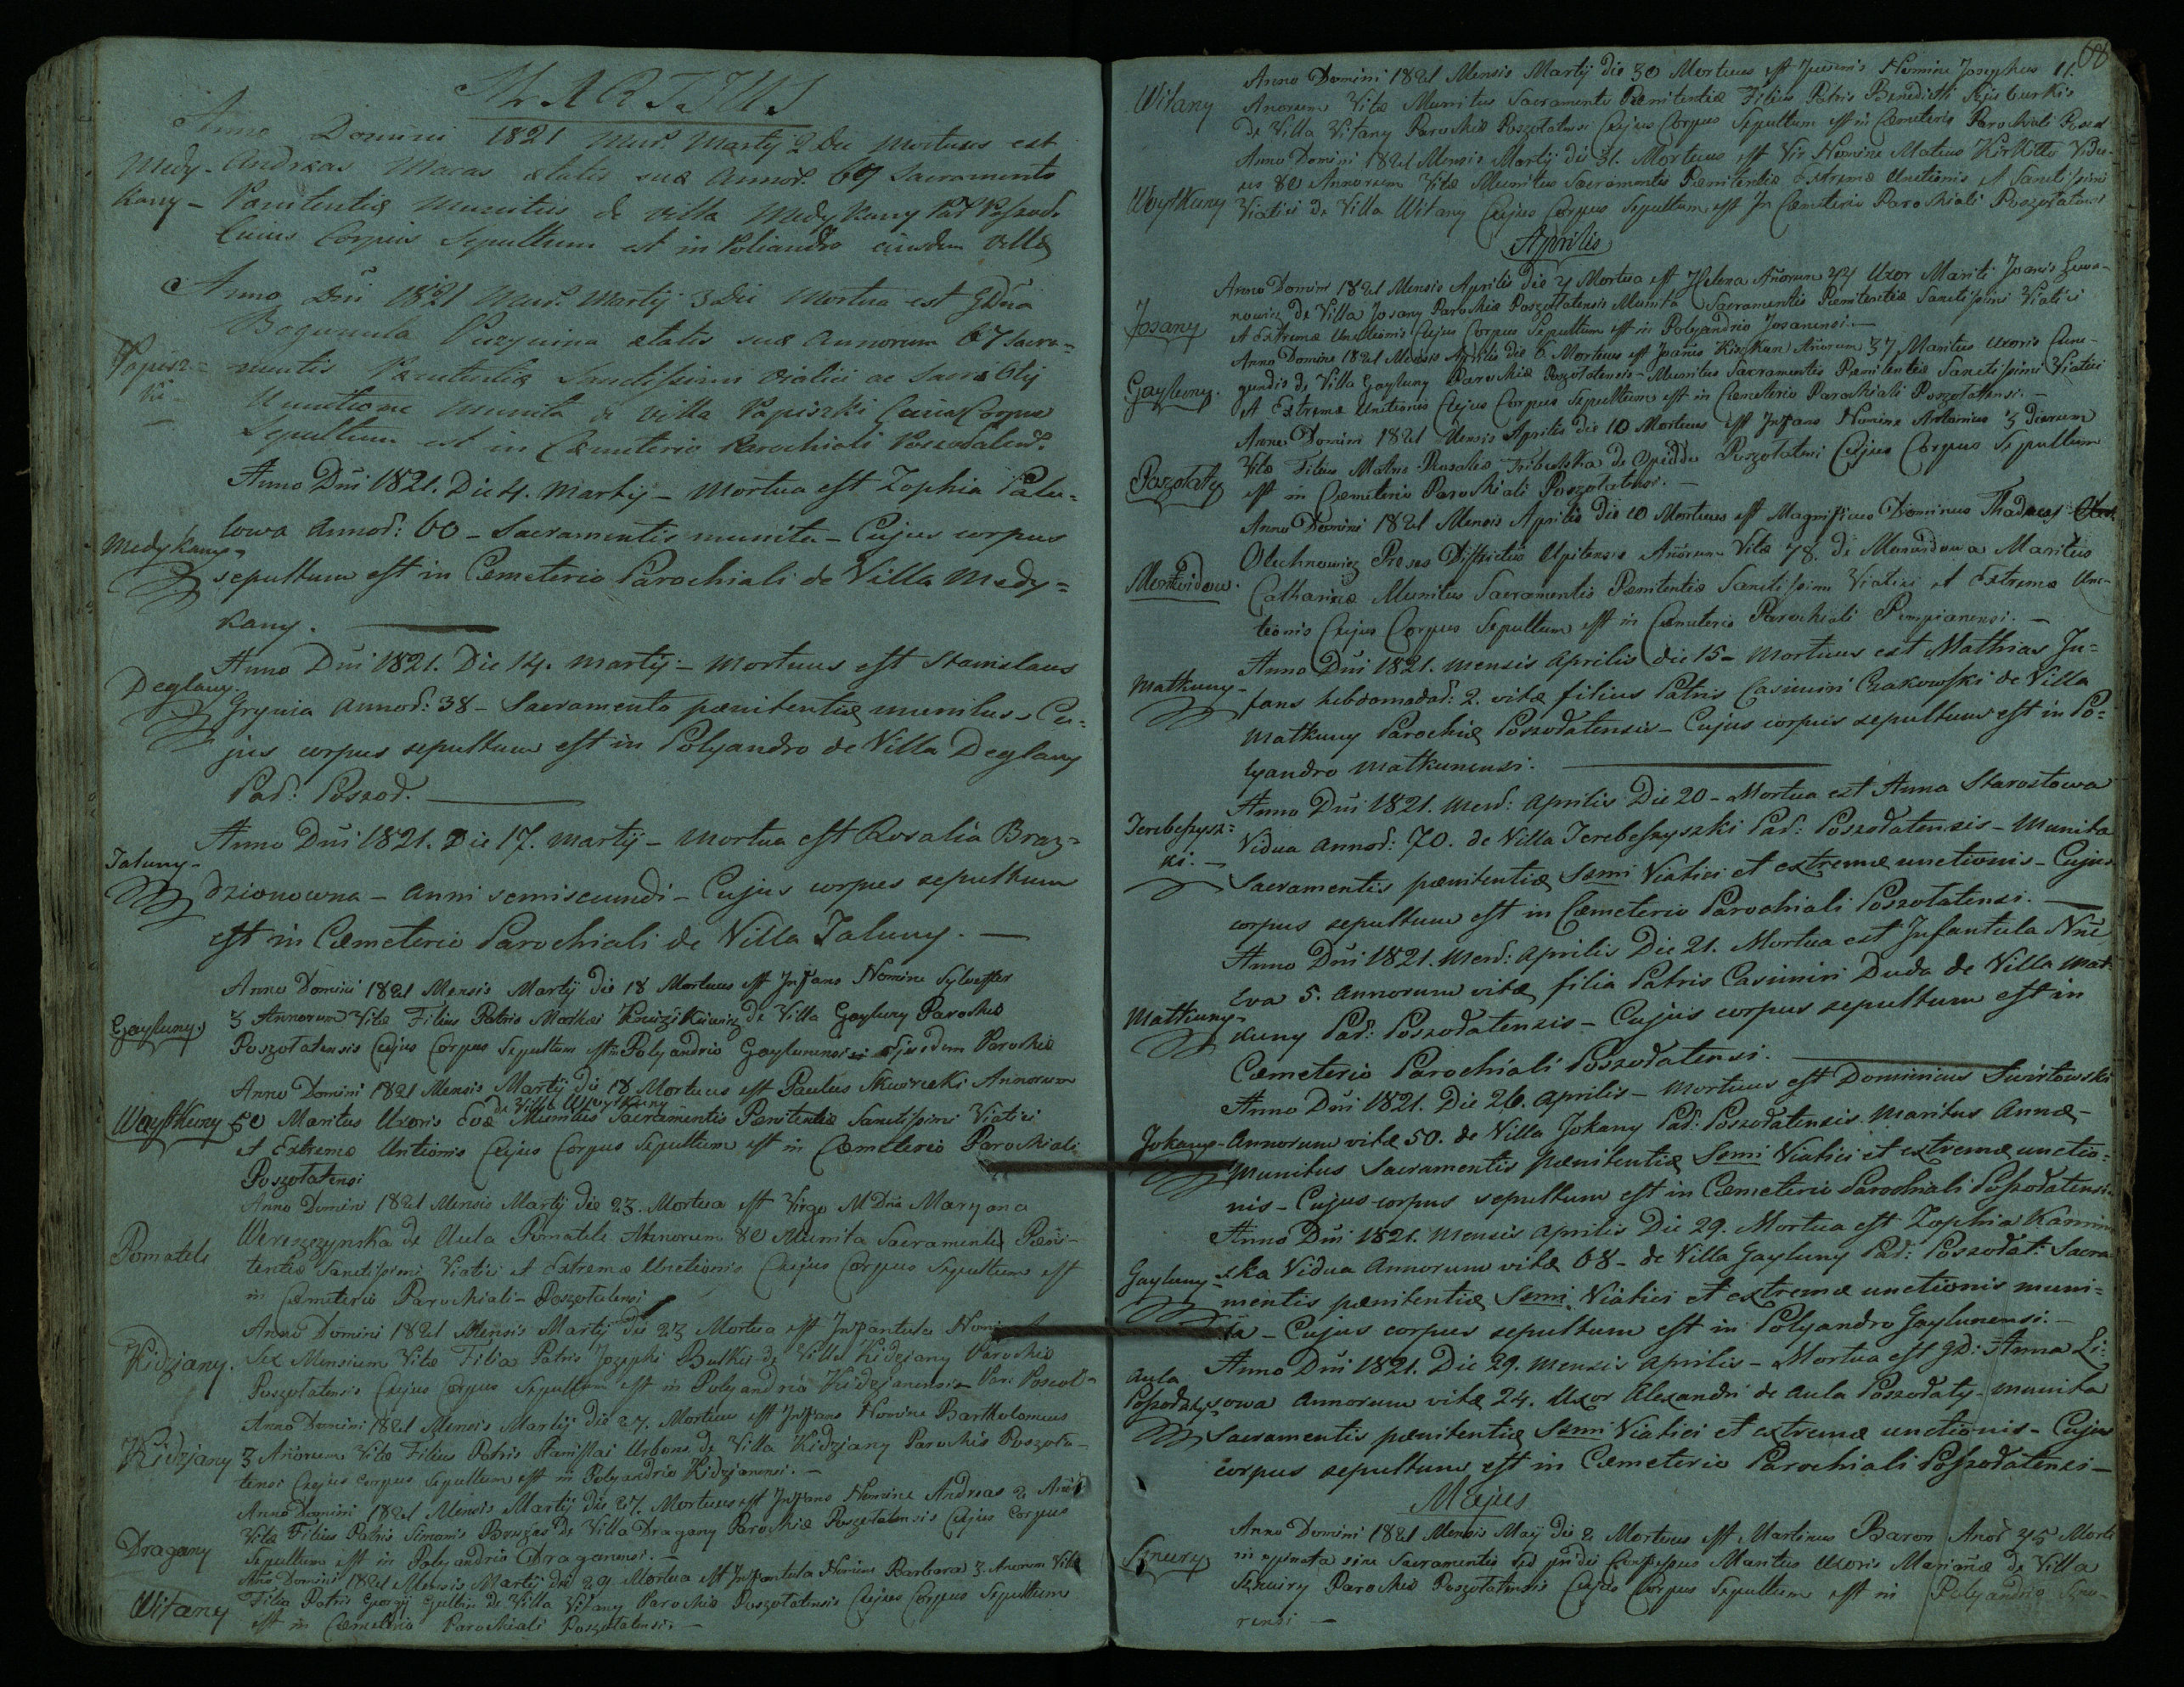 MARTIUS
Anno Domini 1821 Mens. Martij 2 Die Mortuus est
Medy- Andreas Maras ætatis suæ Annor. 67 Sacramento
kany - Pænitentiæ munitus de villa Medykany Par Poszod.
Cuius Corpus Sepultum est in Poliandro eiusdem Villæ
Anno Dni 1821 Mens. Martij 3 Die Mortua est GDna
Bogumila Puzynina ætatis suæ Annorum 67 Sacra=
Papisz= mentis Pænitentiæ Sanctissimi Viatici ac Sacri Olij
ki - Unctione munita de villa Papiszki Cuius Corpus
Sepultum est in Cæmeterio Parochiali Poszodalens.
Anno Dni 1821. Die 4. Martij - Mortua est Zophia Palu=
lowa Annor: 60 - Sacramentis munita - Cujus corpus
Medykany- sepultum est in Cæmeterio Parochiali de Villa Medy=
kany.
Anno Dni 1821. Die 14. Martij - Mortuus est Stanislaus
Deglany. Grynia Annor: 38 - Sacramento pænitentiæ munitus - Cu=
jus corpus sepultum est in Polyandro de Villa Deglany
Par: Poszod.
Anno Dni 1821. Die 17. Martij - Mortua est Rosalia Braz=
Jaluny - dzionowna - anni semisecundi - Cujus corpus sepultum
est in Cæmeterio Parochiali de Villa Jaluny. -
Anno Domini 1821 Mensis Martij die 18 Mortuus est Infans Nomine Sylvester
Gayluny. 3 Annorum Vitæ Filius Patris Mathæi de Villa Gayluny Parochiæ
Poszołatensis Cujus Corpus Sepultum est in Polyandrio Gaylunensi ejusdem Parochiæ
Anno Domini 1821 Mensis Martij die 18 Mortuus est Paulus Skurieki Annorum
de Villa Woytkuny
Woytkuny 50 Maritus Uxoris Evæ Munitus Sacramentis Pænitentiæ Sanctissimi Viatici
et Extremæ Untionis Cujus Corpus Sepultum est in Cæmeterio Parochiali
Poszołatensi
Anno Domini 1821 Mensis Martij die 23. Mortua est Virgo MDna Maryana
Wereszczynska de Aula Pomatele Annorum 80 Munita Sacramentis Pæni-
Pomatele tentiæ Sanctissimi Viatici et Extremæ Unctionis Cujus Corpus Sepultum est
in Cæmeterio Parochiali - Poszołatensi
Anno Domini 1821 Mensis Martij die 23 Mortua est Infantula Nomine
Kidziany. Sex Mensium Vitæ Filia Patris Jozephi Bulkis de Villa Kidziany Parochiæ
Poszołatensis Cujus Corpus Sepultum est in Polyandrio Kidzianensis Par: Poszoł-
Anno Domini 1821 Mensis Martij die 27. Mortuus est Infans Nomine Bartholomeus
Kidziany 3 Anorum Vitæ Filius Patris Stanislai Urbons de Villa Kidziany Parochiæ Poszoła-
tensi Cujus Corpus Sepultum est in Polyandrio Kidzianensi. -
Anno Domini 1821 Mensis Martij die 27. Mortuus est Infans Nomine Andreas 2
Vitæ Filius Patris Simonis Bruzas de Villa Dragany Parochiæ Poszołatensis Cujus Corpus
Dragany Sepultum est in Polyandrio Draganensi. -
Ano Domini 1821 Mensis Martij die 29 Mortua est Infantula Nomine Barbara 3 Anorum Vitæ
Witany Filia Patris Georgij de Villa Vitany Parochiæ Poszołatensis Cujus Corpus Sepultum
est in Cæmeterio Parochiali Poszołatensi. -
68
Anno Domini 1821 Mensis Martij die 30 Mortuus est Juvenis Nomine Josephus 11.
Witany Anorum Vitæ Munitus Sacramento Pænitentiæ Filius Patris Benedicti
de Villa Vitany Parochiæ Poszołatensi Cujus Corpus Sepultum est in Cæmeterio Parochiali Poszoł
Anno Domini 1821 Mensis Martij die 31. Mortuus est Vir Nomine Mateus Kirkitto Vidu-
us 80 Annorum Vitæ Munitus Sacramentis Pænitentiæ Extremæ Unctionis et Sanctissimi
Woytkuny Viatici de Villa Witany Cujus Corpus Sepultum est In Cæmeterio Parochiali Poszołatensi
Aprilis
Anno Domini 1821 Mensis Aprilis die 4 Mortua est Helena Anorum 44 Uxor Mariti Joanis
Josany de Villa Josany Parochiæ Poszołatensis Munita Sacramentis Pænitentiæ Sanctissimi Viatici
et Extremæ Unctionis Cujus Corpus Sepultum est in Polyandrio Josanensi. -
Anno Domini 1821 Mensis Aprilis die 6 Mortuus est Joanes Kiszkun Anorum 37 Maritus Uxoris Cune-
Gayluny. gundis de Villa Gayluny Parochiæ Poszołatensis - Munitus Sacramentis Pænitentiæ Sanctissimi Viatici
et Extremæ Unctionis Cujus Corpus Sepultum est in Cæmeterio Parochiali Poszołatensi. -
Anno Domini 1821 Mensis Aprilis die 10 Mortuus est Infans Nomine Antonius 3 dierum
Poszołaty Vitæ Filius Matris Rosaliæ Tribulska de Opiddo Poszołatensi Cujus Corpus Sepultum
est in Cæmeterio Parochiali Poszołatensi. -
Anno Domini 1821 Mensis Aprilis die 10 Mortuus est Magnificus Dominus Thadeus
Olechnowicz Preses Districtus Upitensis Anorum Vitæ 78. de Montvidowa Maritus
Montvidow. Catharinæ Munitus Sacramentis Pænitentiæ Sanctissimi Viatici et Extremæ Unc-
tionis Cujus Corpus Sepultum est in Cæmeterio Parochiali Pompianensi. -
Anno Dni 1821. mensis Aprilis die 15 - Mortuus est Mathias In=
Matkuny - fans hebdomadar: 2. vitæ filius Patris Casimiri Czakowski de Villa
Matkuny Parochiæ Poszodatensis - Cujus corpus sepultum est in Po=
lyandro Matkunensi.
Anno Dni 1821. Mens: Aprilis Die 20 - Mortua est Anna Starostowa
Jerebeszysz= Vidua Annor: 70. de Villa Jerebeszyszki Par: Poszodatensis - Munita
ki. - Sacramentis pænitentiæ Ssmi Viatici et extremæ unctionis - Cujus
corpus sepultum est in Cæmeterio Parochiali Poszodatensi.
Anno Dni 1821. Mens: Aprilis Die 21. Mortua est Infantula Nne
Eva 5. Annorum vitæ filia Patris Casimiri Duda de Villa Mat-
Matkuny - kuny Par: Poszodatensis - Cujus corpus sepultum est in
Cæmeterio Parochiali Poszodatensi.
Anno Dni 1821. Die 26. Aprilis - Mortuus est Dominicus Swirtowski
Jokany - Annorum vitæ 50. de Villa Jokany Par: Poszodatensis Maritus Annæ -
Munitus Sacramentis pænitentiæ Ssmi Viatici et extremæ unctio=
nis - Cujus corpus sepultum est in Cæmeterio Parochiali Poszodatensi.
Anno Dni 1821. Mensis Aprilis Die 29. Mortua est Zophia Kamin
Gayluny - ska Vidua Annorum vitæ 68 - de Villa Gayluny Par: Poszodat: Sacra
mentis pænitentiæ Ssmi Viatici et extremæ unctionis muni=
ta - Cujus corpus sepultum est in Polyandro Gaylunensi. -
Anno Dni 1821. Die 29. Mensis Aprilis - Mortua est GD: Anna Li=
Aula Poszodaty sowa Annorum vitæ 24. Uxor Alexandri de Aula Poszodaty - Munita
Sacramentis pænitentiæ Ssmi Viatici et extremæ unctionis - Cujus
corpus sepultum est in Cæmeterio Parochiali Poszodatensi -
Majus
Anno Domini 1821 Mensis Maij die 2 Mortuus est Martinus Baron Anor 45 Morte
sine Sacramentis sed Maritus Uxoris Marianæ de Villa
Parochiæ Poszołatensis Cujus Corpus Sepultum est in Polyandrio
rensi -